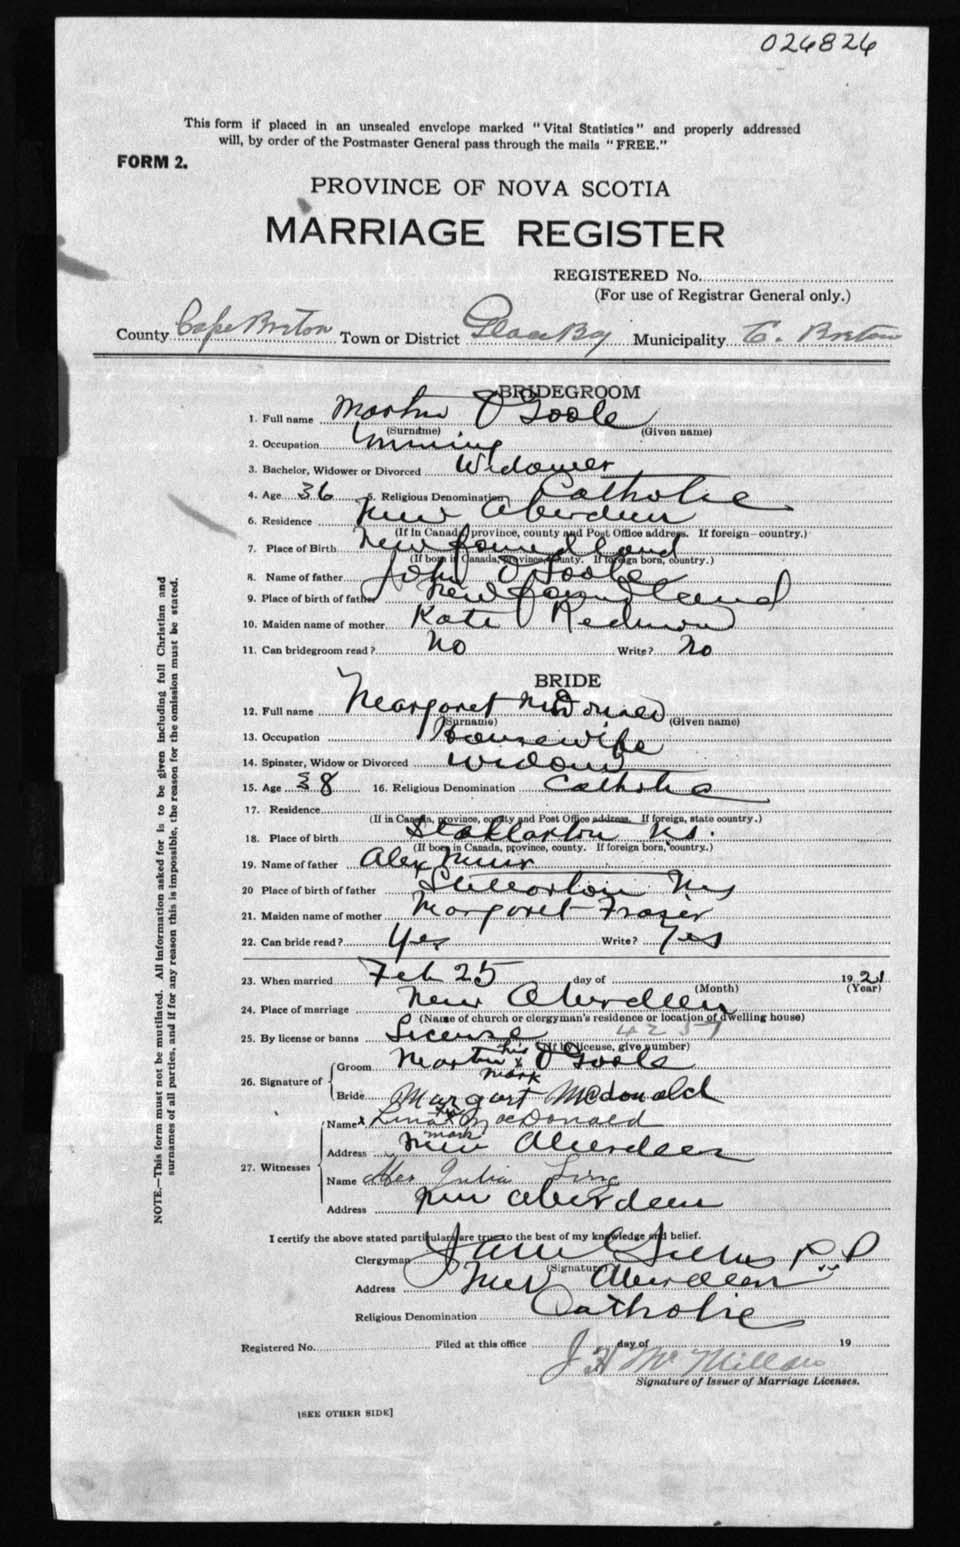 026826
This form if placed in an unsealed envelope marked "Vital Statistics" and properly addressed
will, by order of the Postmaster General pass through the mails "FREE."
FORM 2.
PROVINCE OF NOVA SCOTIA
MARRIAGE REGISTER
REGISTERED No.
(For use of Registrar General only.)
County Cape Breton Town or District Glace Bay Municipality C. Breton
BRIDEGROOM
1. Full name Martin O'Toole
(Surname) (Given name)
2. Occupation mining
3. Bachelor, Widower or Divorced Widower
4. Age 36 5. Religious Denomination Catholic
6. Residence New Aberdeen
(If in Canada, province, county and Post Office address. If foreign—country.)
7. Place of Birth Newfoundland
(If born in Canada, province, county. If foreign born, country.)
8. Name of father John O'Toole
9. Place of birth of father Newfoundland
10. Maiden name of mother Kate Redmon
11. Can bridegroom read? No Write? No
BRIDE
12. Full name Margaret McDonald
(Surname) (Given name)
13. Occupation Housewife
14. Spinster, Widow or Divorced Widow
15. Age 38 16. Religious Denomination Catholic
17. Residence
(If in Canada, province, county and Post Office address. If foreign, state country.)
18. Place of birth Stellarton N.S.
(If born in Canada, province, county. If foreign born, country.)
19. Name of father Alex Muir
20 Place of birth of father Stellarton NS
21. Maiden name of mother Margaret Frazier
22. Can bride read? Yes Write? Yes
23. When married Feb 25 day of 1921
(Month) (Year)
24. Place of marriage New Aberdeen
(Name of church or clergyman's residence or location of dwelling house)
25. By license or banns License
(If by license, give number)
26. Signature of Groom Martin his x mark O'Toole
Bride Margart McDonald
27. Witnesses Name x MacDonald
mark
Address New Aberdeen
Name Mrs Julia
Address New Aberdeen
I certify the above stated particulars are true to the best of my knowledge and belief.
Clergyman P.P
(Signature)
Address New Aberdeen
Religious Denomination Catholic
Registered No. Filed at this office day of 19
J H McMillan
Signature of Issuer of Marriage Licenses.
[SEE OTHER SIDE]
NOTE.—This form must not be mutilated. All information asked for is to be given including full Christian and
surnames of all parties, and if for any reason this is impossible, the reason for the omission must be stated.